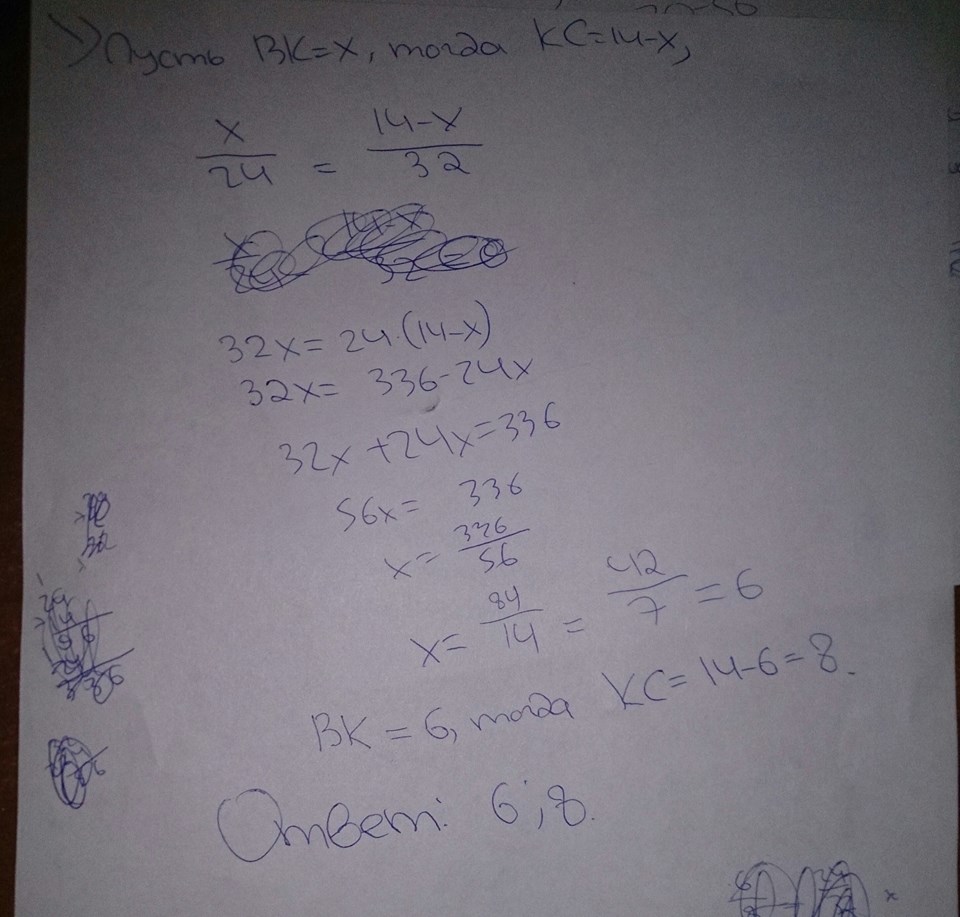 1) Пусть BK=x, тогда KC=14-x,
x/24 = (14-x)/32
32x= 24·(14-x)
32x= 336-24x
32x+24x=336
56x= 336
x= 336/56
x= 84/14 = 42/7 = 6
BK = 6, тогда KC= 14-6=8.
Ответ: 6;8.